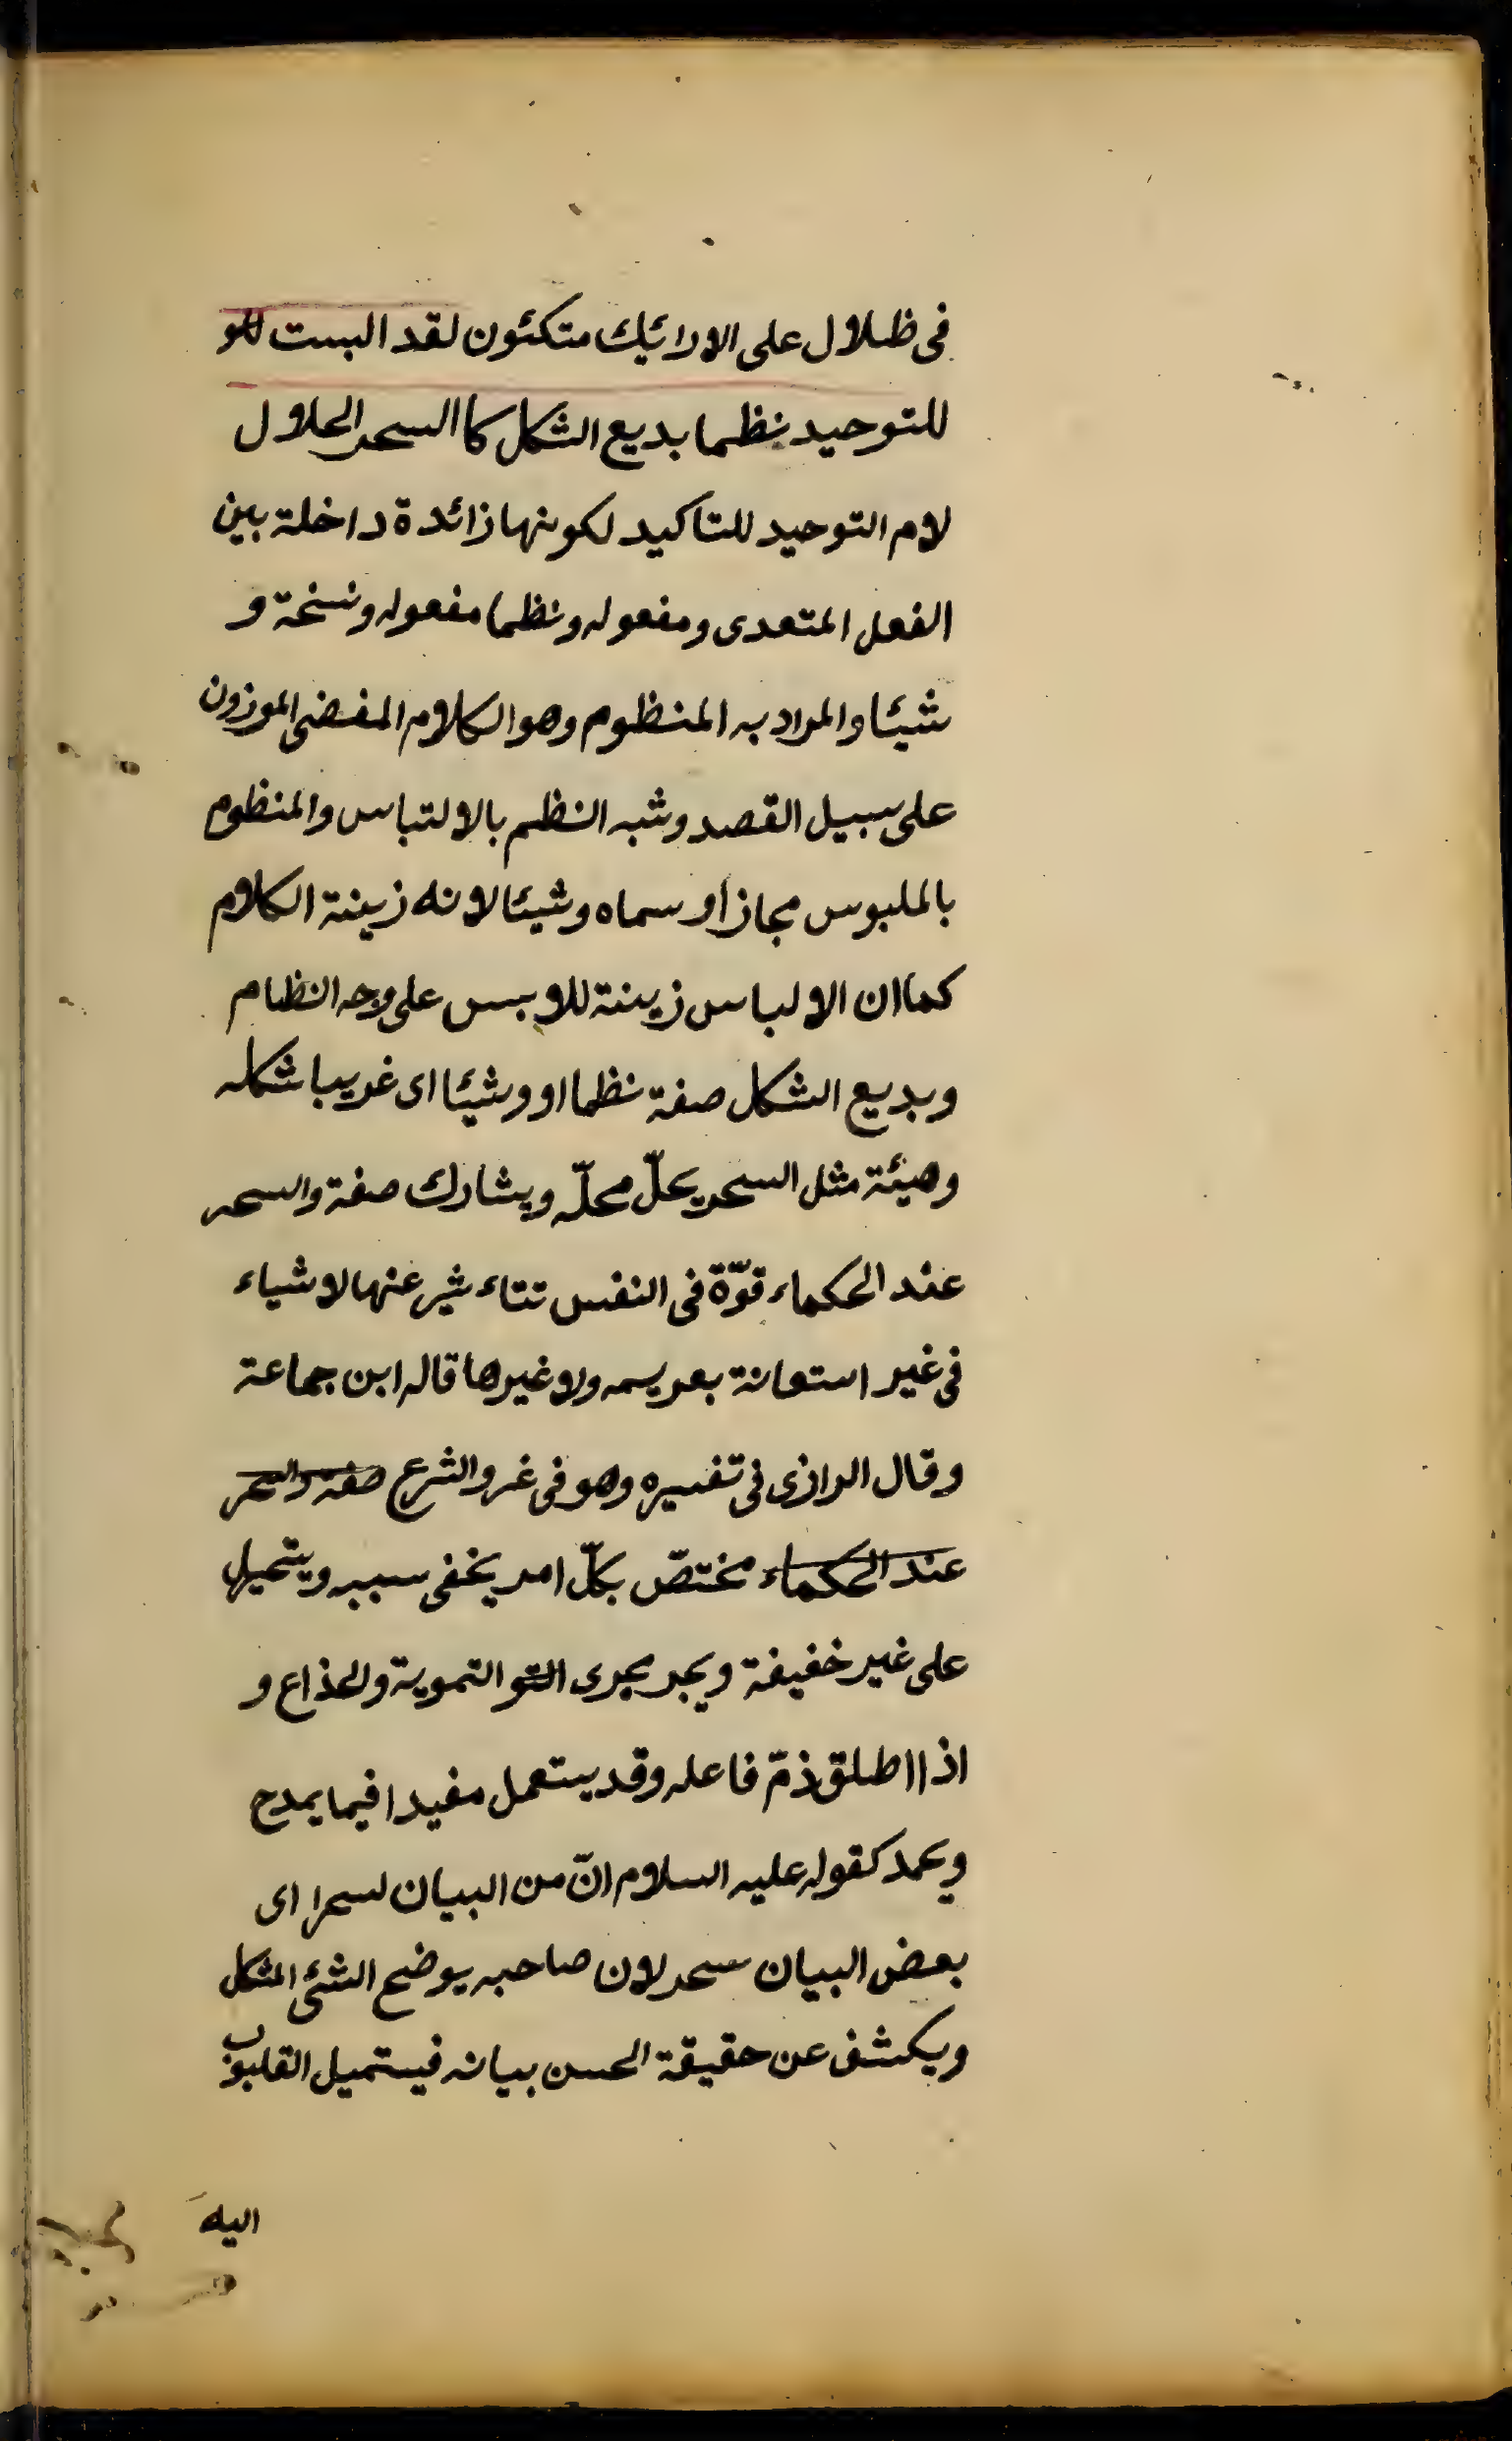 فى ظلال على الارائيك متكئون لقد البست للتو
للتوحيد نظما بديع الشكل كاالسحر الحلال
لام التوحيد للتاكيد لكونها زائدة داخلة بين
الفعل المتعدى ومفعوله ونظما مفعوله ونسخة و
شيئا والمراد به المنظوم وهو الكلام المفضى الموزون
على سبيل القصد وشبه النظم بالالتباس والمنظوم
بالملبوس مجازا وسماه وشيئا لانه زينة الكلام
كماان الالباس زينة للابس على وجه النظام
وبديع الشكل صفة نظما او وشيئا اى غريبا شكله
وهيئة مثل السحر يحلّ محلّه ويشارك صفة والسحر
عند الحكماء قوّة فى النفس تتاء ثير عنها لاشياء
فى غير استعانة بعريسه ولا غيرها قاله ابن جماعة
وقال الرازى فى تفسيره وهو فى غرو الشرع صفة والسحر
عند الحكماء مختصّ بكلّ امر يخفى سببه ويتحيل
على غير خفيفة ويجر مجرى التو التموية والخذاع و
اذا اطلق ذمّ فاعله وقد يستعمل مفيدا فيما يمدح
ويحمد كقوله عليه السلام انّ من البيان لسحرا اى
بعض البيان سحر لان صاحبه يوضح الشئ المشكل
ويكشف عن حقيقة الحسن بيانه فيستميل القلوب
اليه